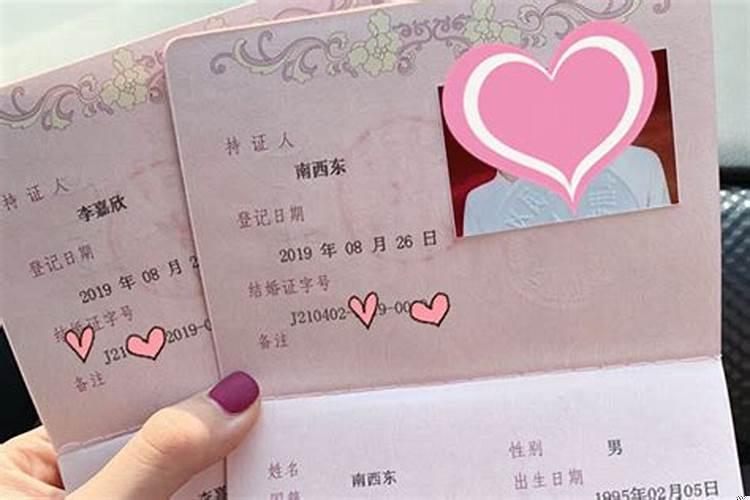 持证人
李嘉欣
登记日期
2019 年 08 月 2
结婚证字号
J21
2019-0
备注
李嘉
持证人
南西东
登记日期
2019 年 08 月 26 日
结婚证字号
J210402-
9-00
备注
姓名
南西东
性别
男
出生日期
1995年02月05日